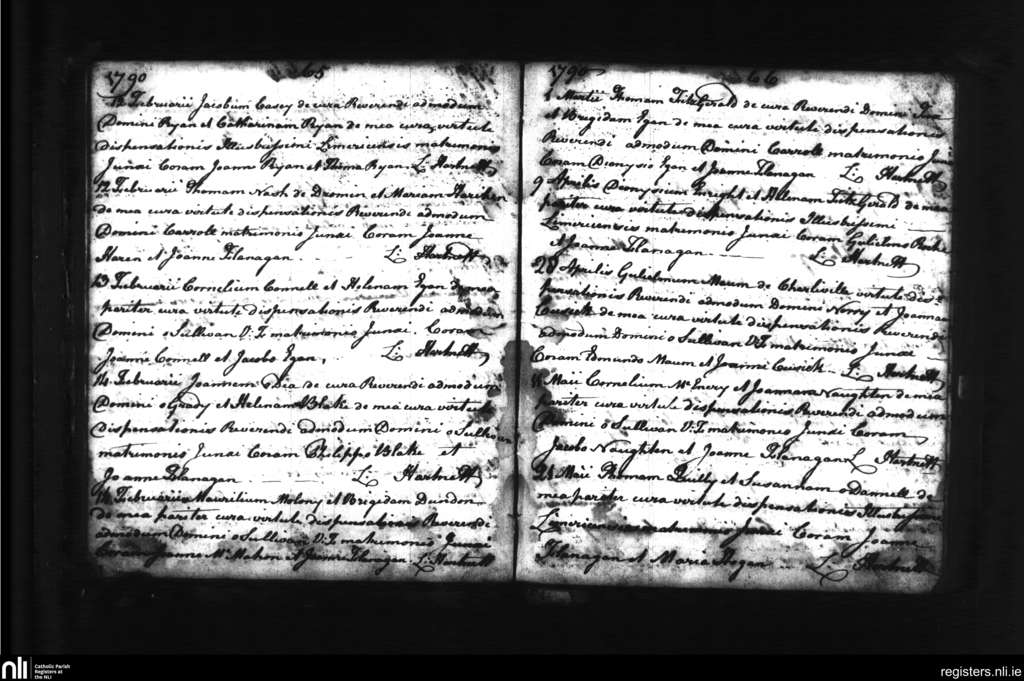 1790 65
12 Februarii Jacobum Casey de cura Reverendi admodum
Domini Ryan et Catharinam Ryan de mea cura, virtute
dispensationis Illustrissimi Limericensis matrimonio
Junxi Coram Joanne Ryan et Ryan L: Hartnett
12 Februarii Thomam Nash de Dromin et Mariam
de mea cura virtute dispensationis Reverendi admodum
Domini Carroll matrimonio Junxi Coram Joanne
et Joanne Flanagan L: Hartnett
13 Februarii Cornelium Connell et Helenam Egan de mea
pariter cura virtute dispensationis Reverendi admodum
Domini o Sullivan V:F matrimonio Junxi. Coram
Joanne Connell et Jacobo Egan, L: Hartnett
14 Februarii Joannem o Dia de cura Reverendi admodum
Domini o Grady et Helenam Blake de mea cura virtute
dispensationis Reverendi admodum Domini o Sullivan
matrimonio Junxi Coram Philippo Blake et
Joanne Flanagan L: Hartnett
Februarii Molony et Brigidam Dundon
de mea pariter cura virtute dispensationis Reverendi
admodum Domini o Sullivan V:F matrimonio Junxi
Coram Joanne Mc Mahon et Joanne Flanagan L: Hartnett
1790 66
Martii Thomam FitzGerald de cura Reverendi Domini
et Brigidam Egan de mea cura virtute dispensationis
Reverendi admodum Domini Carroll matrimonio
Coram Dionysio Egan et Joanne Flanagan L: Hartnett
9 Aprilis Dionysium Enright et Helenam FitzGerald de mea
pariter cura virtute dispensationis Illustrissimi
Limericensis matrimonio Junxi Coram Gulielmo
et Joanne Flanagan L: Hartnett
28 Aprilis Gulielmum Meum de Charliville virtute dis=
pensationis Reverendi admodum Domini et Joannam
Cusick de mea cura virtute dispensationis Reverendi
admodum Domini o Sullivan V:F matrimonio Junxi
Coram Edmundo Meum et Joanne Cusick L: Hartnett
Maii Cornelium Mc Enery et Joannam Naughten de mea
pariter cura virtute dispensationis Reverendi admodum
Domini o Sullivan V:F matrimonio Junxi Coram
Jacobo Naughten et Joanne Flanagan L Hartnett
Maii Thomam Reilly et Susannam o Dannell de
mea pariter cura virtute dispensationis Illustrissimi
Limericensis matrimonio Junxi Coram Joanne
Flanagan et Maria Hogan L: Hartnett
nli Catholic Parish
Registers at
the NLI
registers.nli.ie